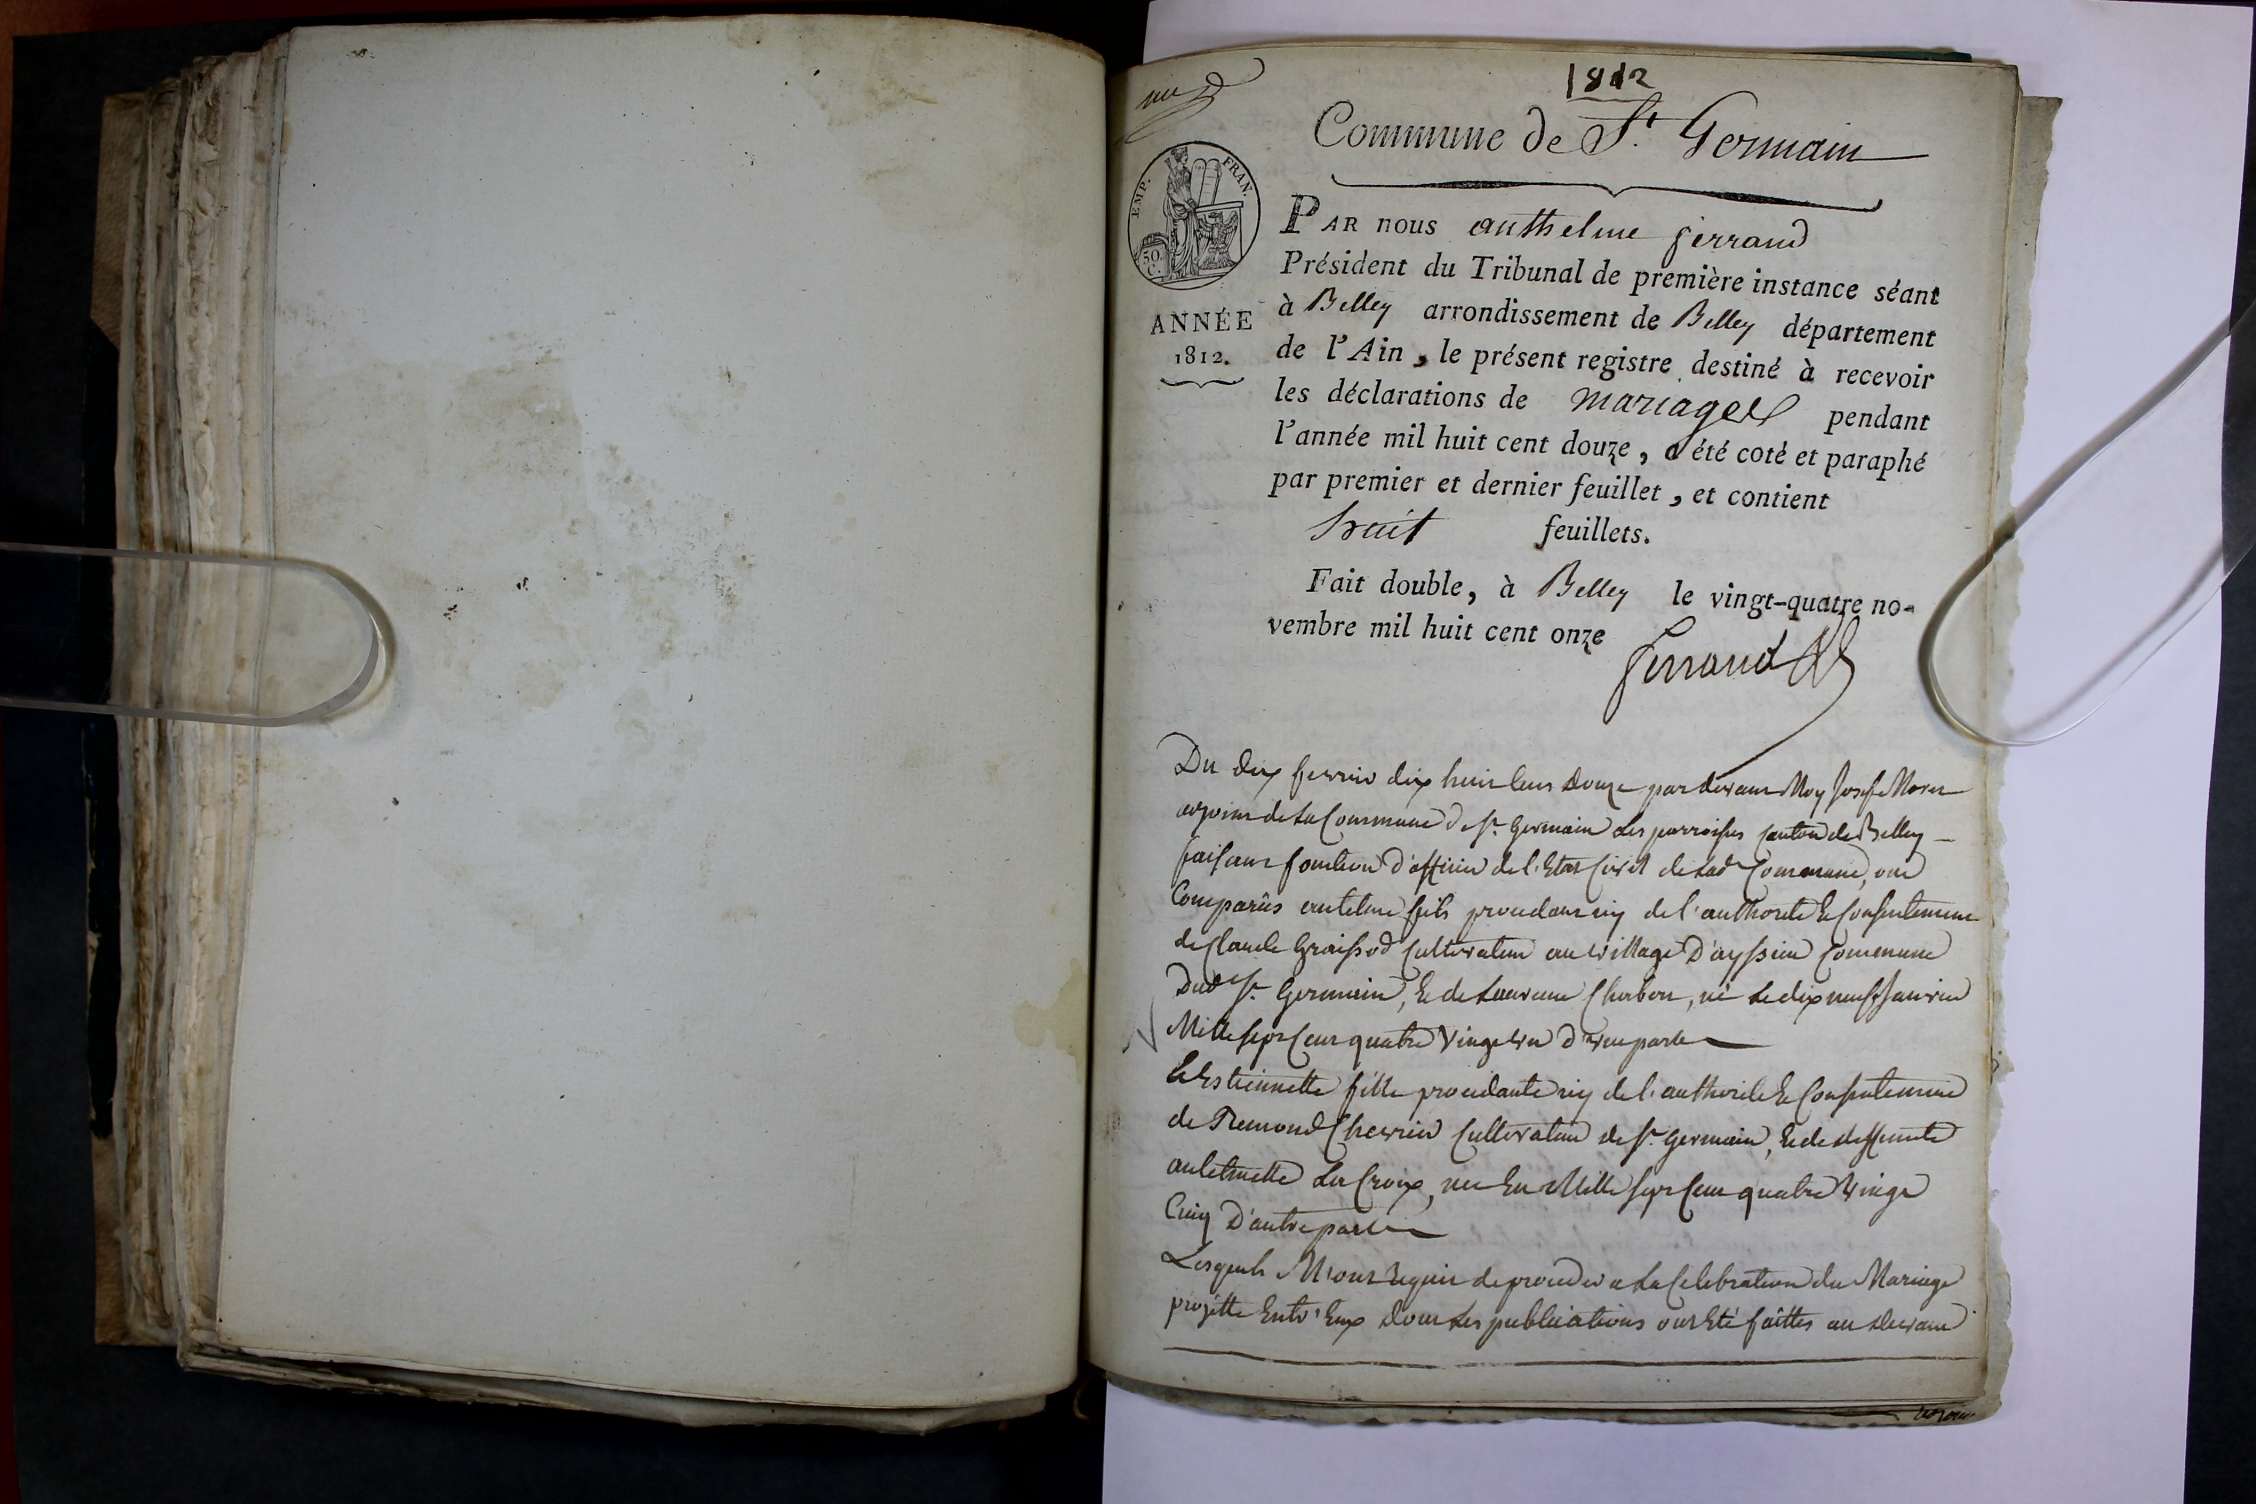 1812
Commune de St. Germain
EMP. FRAN.
50 C.
ANNÉE
1812.
PAR nous anthelme ferrand
Président du Tribunal de première instance séant
à Belley arrondissement de Belley département
de l'Ain, le présent registre destiné à recevoir
les déclarations de mariages pendant
l'année mil huit cent douze, a été coté et paraphé
par premier et dernier feuillet, et contient
huit feuillets.
Fait double, à Belley le vingt-quatre no-
vembre mil huit cent onze
ferrand
Du dix fevrier dix huit cent douze par devant Moy Josef Moret
adjoint de La Commune de St. Germain Les parroisses canton de Belley
faisant fonction d'officier de l'Etat Civil de lad. Commune, ont
Comparûs antelme fils procedant de l'authorite Et Consentement
de Claude Graissod Cultivateur au village D'ayssieu Commune
Dud. St. Germain, Et de Laurence Charbon, né Le dix neuf Janvier
Mille sept Cent quatre Vingt un d'une parte
Et Estiennette fille procedante de l'authorite Et Consentement
de Remond Chevrier Cultivateur de St. Germain, Et de deffuncte
antelmette La Croix, née En Mille sept Cent quatre Vingt
Cinq D'autre parte
Lesquels M'ont Requis de proceder a La Celebration du Mariage
projetté Entr'Eux dont Les publications ont Eté faittes au devant